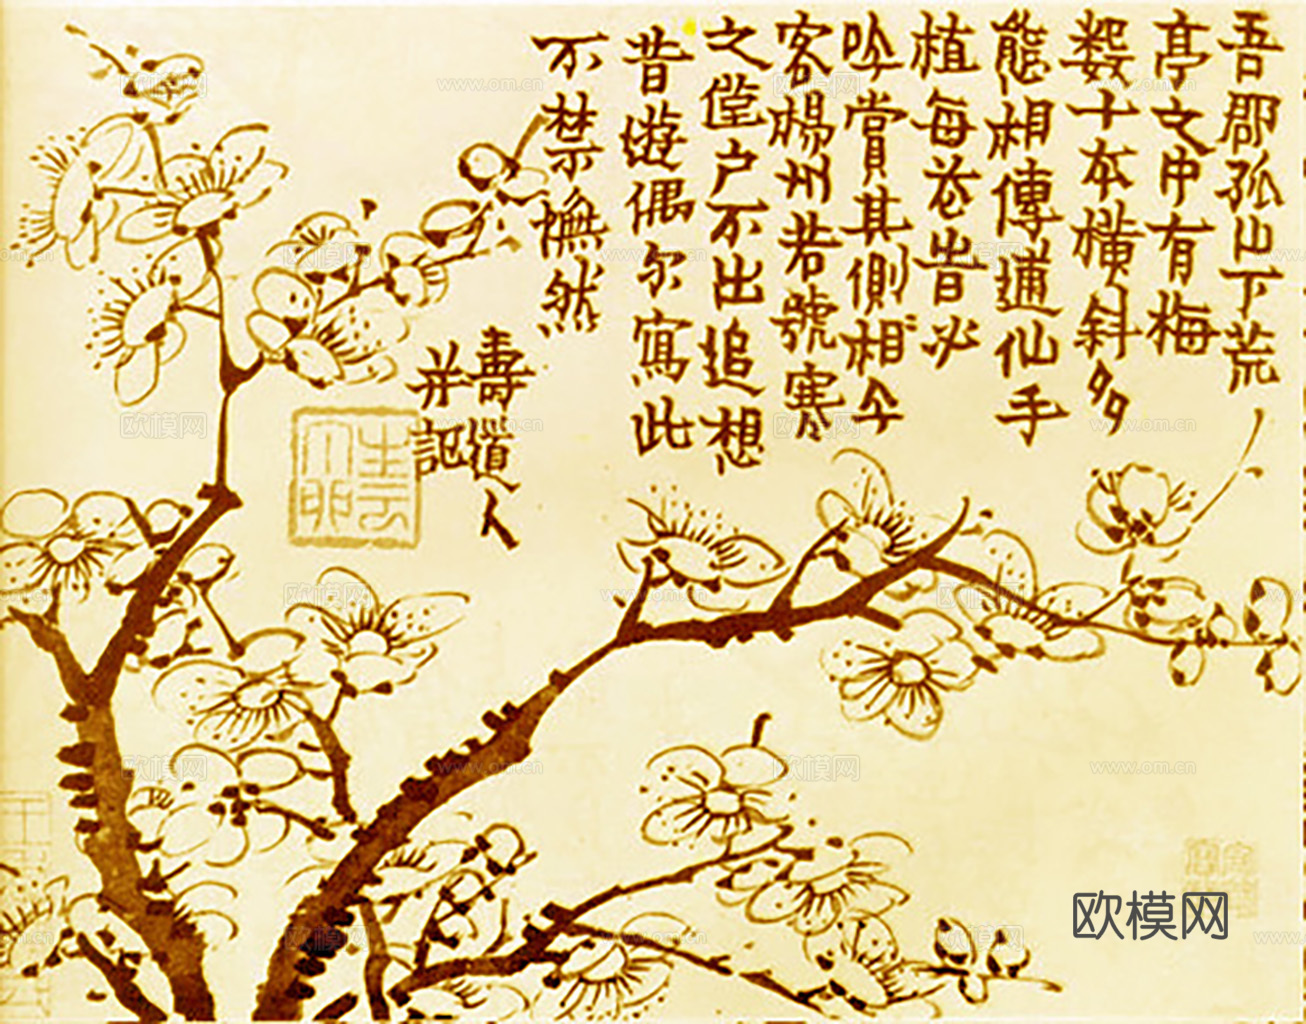 吾郡孤山下荒
亭之中有梅
數十本橫斜多
態相傳逋仙手
植每花時必
吟賞其側相今
客楊州若號寒
之隺戶不出追想
昔遊偶尔寫此
不禁憮然
壽道人
并記
欧模网